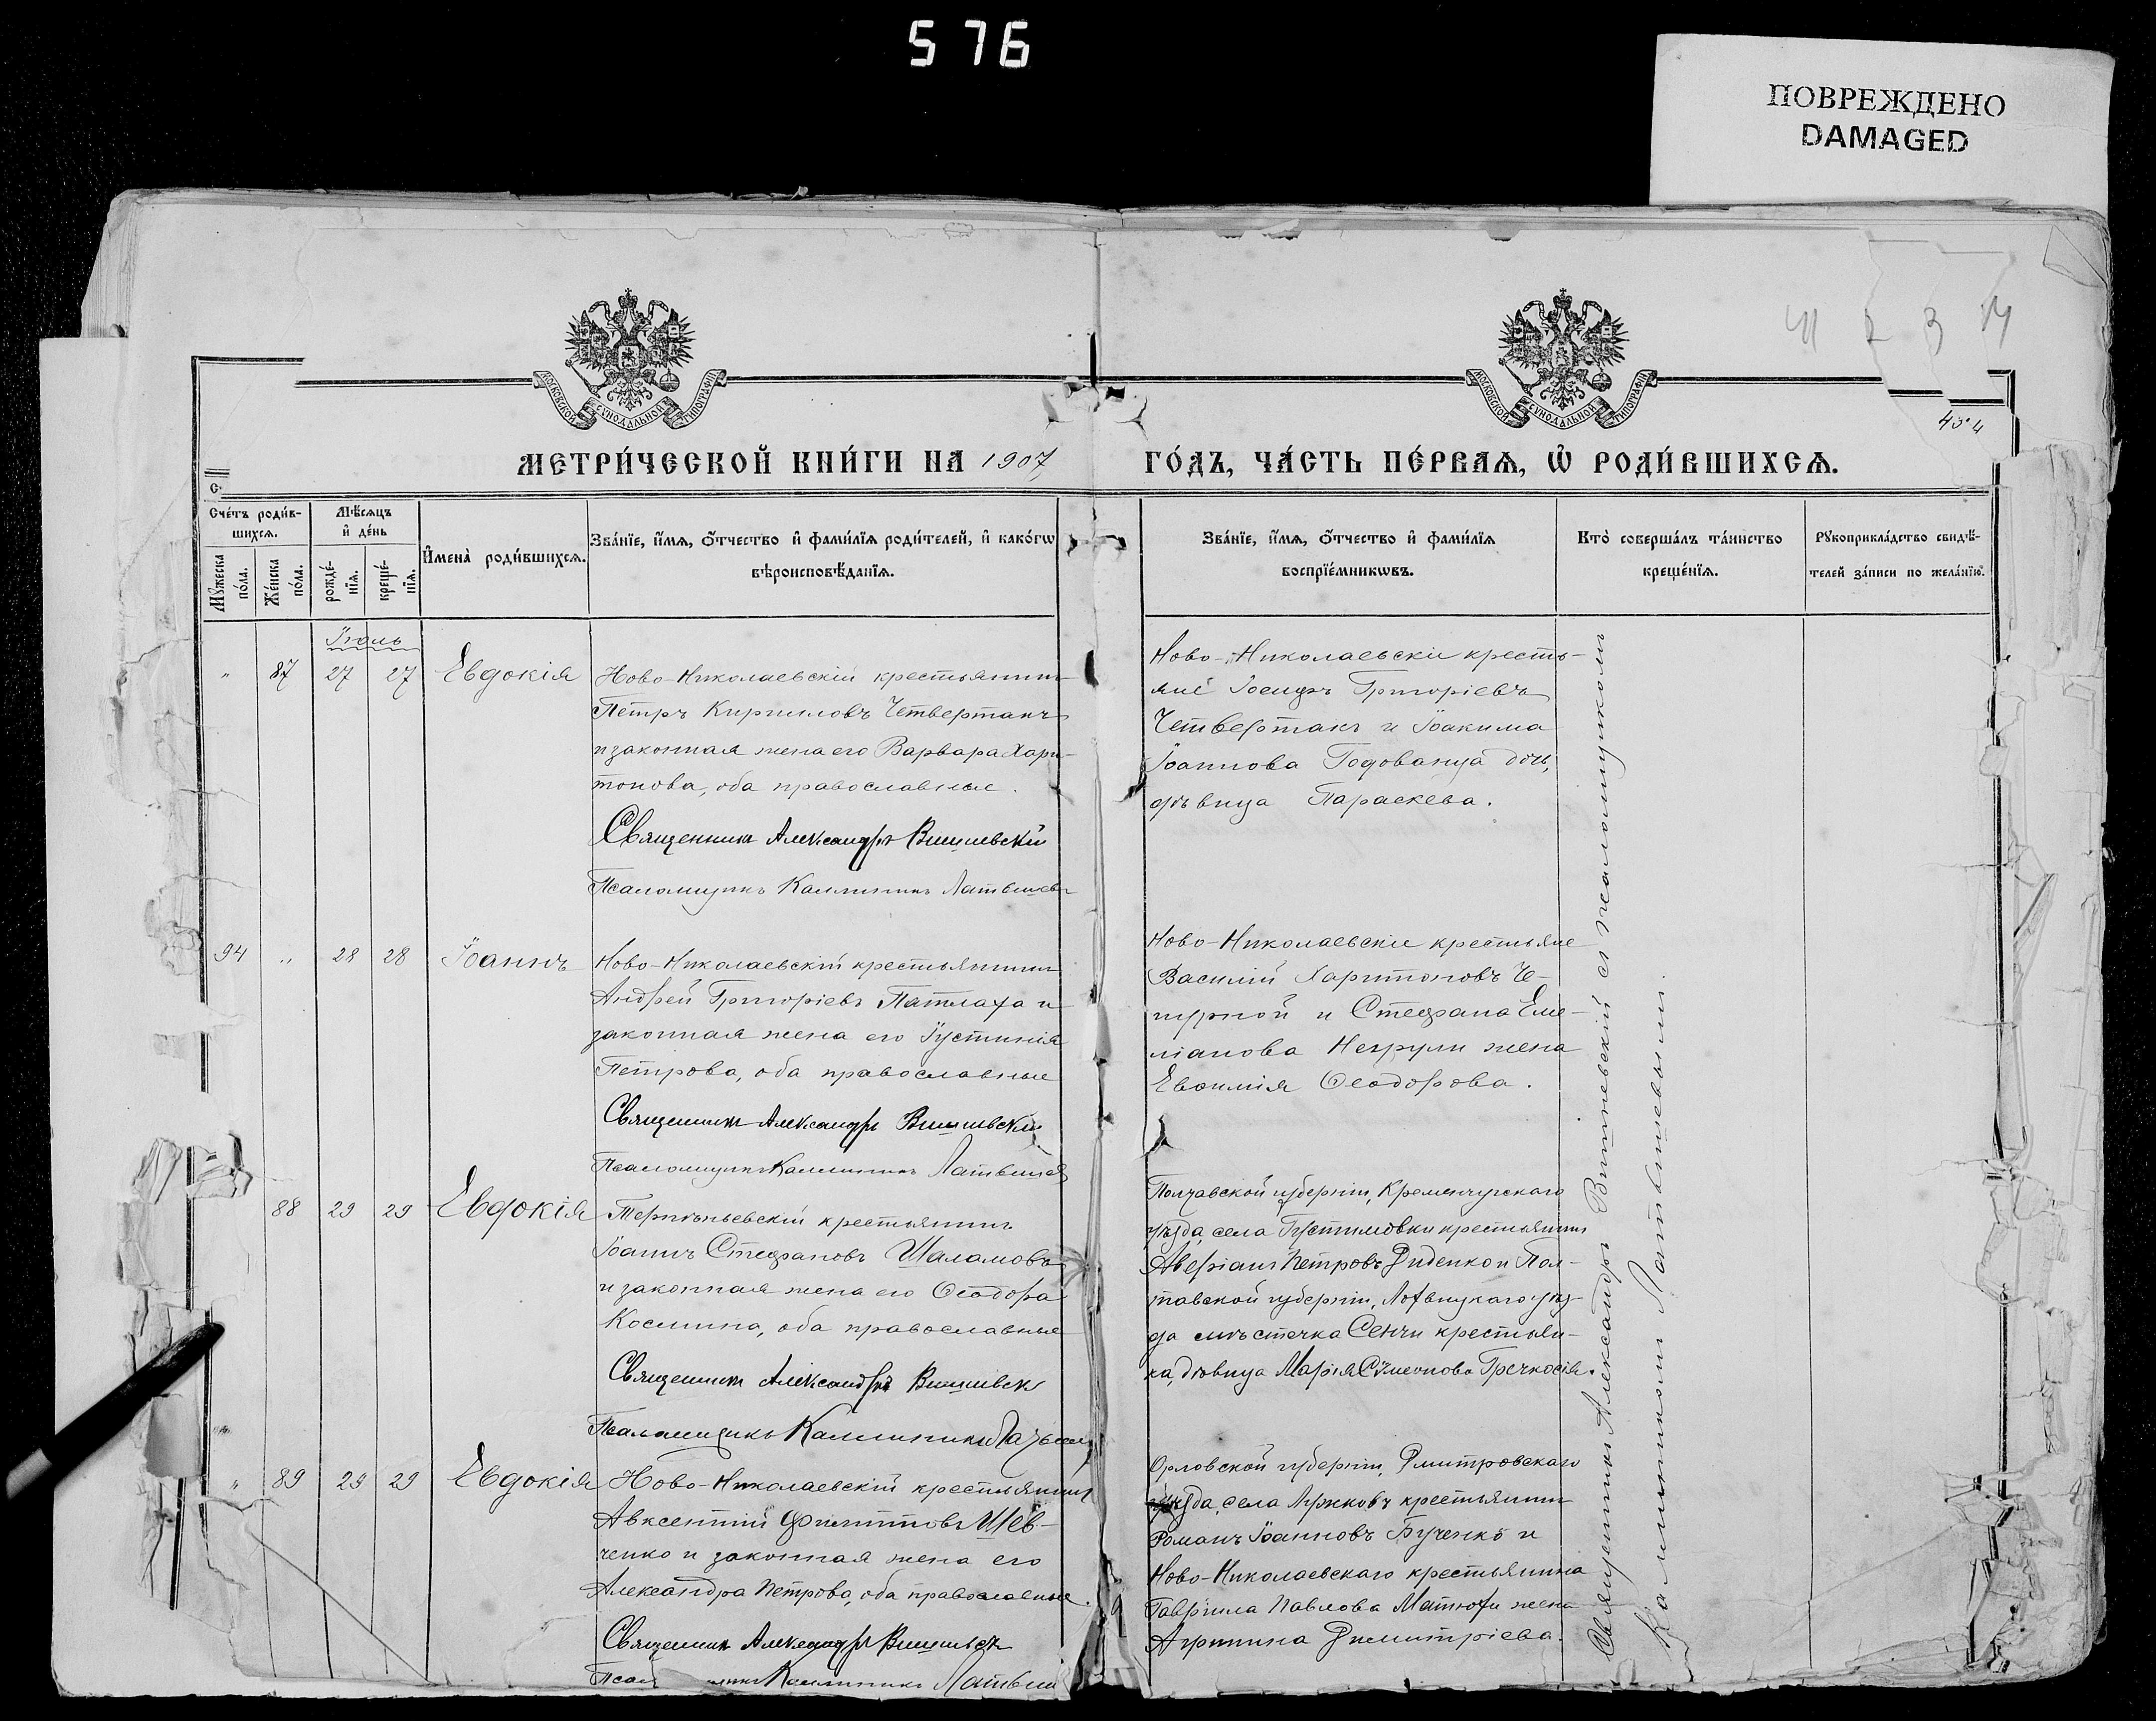 576
ПОВРЕЖДЕНО
DAMAGED
МОСКОВСКОЙ СѴНОДАЛЬНОЙ ТИПОГРАФІИ
МОСКОВСКОЙ СѴНОДАЛЬНОЙ ТИПОГРАФІИ
454
МЕТРИ́ЧЕСКОЙ КНИ́ГИ НА 1907
ГО́ДЪ, ЧА́СТЬ ПЕ́РВАѦ, Ѡ҆ РОДИ́ВШИХСѦ.
Сче́тъ роди́в-
шихсѧ.
Мꙋ́жеска
по́ла.
Же́нска
по́ла.
Мѣ́сѧцъ
и҆ де́нь
рожде́-
нїѧ.
креще́-
нїѧ.
И҆мена̀ роди́вшихсѧ.
Зва́нїе, и҆́мѧ, ѻ҆́тчество и҆ фами́лїѧ роди́телей, и҆ како́гѡ
вѣроисповѣ́данїѧ.
Зва́нїе, и҆́мѧ, ѻ҆́тчество и҆ фами́лїѧ
воспрїе́мникѡвъ.
Кто̀ соверша́лъ та́инство
креще́нїѧ.
Рꙋкоприкла́дство свидѣ́-
телей за́писи по жела́нїю.
Іюль
" 87 27 27 Евдокія
Ново-Николаевскій крестьянинъ
Петръ Кирилловъ Четвертакъ
и законная жена его Варвара Хари-
тонова, оба православные.
Священникъ Александръ Вишневскій
Псаломщикъ Каллиникъ Латышевъ
Ново-Николаевскіе кресть-
яне Іосифъ Григоріевъ
Четвертакъ и Іоакима
Іоаннова Годованца дочь,
дѣвица Параскева.
94 " 28 28 Іоаннъ
Ново-Николаевскій крестьянинъ
Андрей Григоріевъ Патлаха и
законная жена его Іустинія
Петрова, оба православные
Священникъ Александръ Вишневскій
Псаломщикъ Каллиникъ Латышев
Ново-Николаевскіе крестьяне
Василій Харитоновъ Че-
пурной и Стефана Еме-
ліанова жена
Евѳимія Ѳеодорова.
88 29 29 Евдокія
крестьянинъ
Іоаннъ Стефановъ Шаламовъ
и законная жена его Ѳеодора
Космина, оба православные
Священникъ Александръ Вишневск
Псаломщикъ Каллиникъ
Полтавской губерніи, Кременчугскаго
уѣзда, села Густимовки крестьянинъ
Аверіанъ Петровъ Диденко и Пол-
тавской губерніи, Лохвицкаго уѣз-
да мѣстечка Сенчи крестьян-
ка, дѣвица Марія Сѵмеонова Гречкосія.
" 89 29 29 Евдокія
Ново-Николаевскій крестьянинъ
Авксентій Филипповъ Шев-
ченко и законная жена его
Александра Петрова, оба православные.
Священникъ Александръ Вишневск
Псал Каллиникъ Латыш
Орловской губерніи, Дмитровскаго
уѣзда, села Лужковъ крестьянинъ
Романъ Іоанновъ Бученко и
Ново-Николаевскаго крестьянина
Гавріила Павлова Матюхи жена
Агрипина Димитріева.
Священникъ Александръ Вишневскій съ псаломщикомъ
Каллиникомъ Латышевымъ.